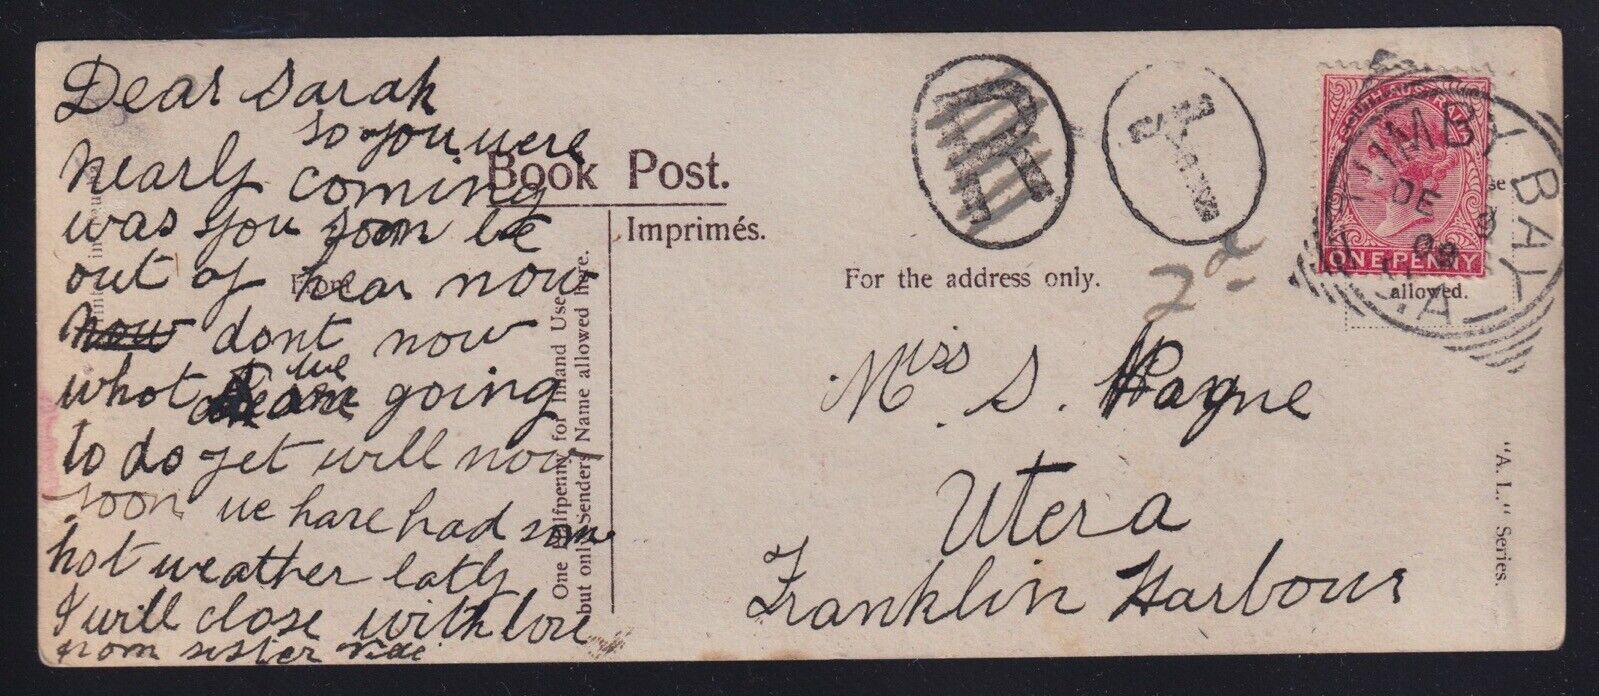 Dear Sarah
so you were
nearly coming
was you soon be
out of hear now
now dont now
whot we are going
to do yet will now
soon we have had som
hot weather latly
I will close with love
from sister
Book Post.
Imprimés.
From
One Halfpenny for Inland Use
but only Senders Name allowed here.
For the address only.
T
T
2d
SOUTH AUSTRALIA
ONE PENNY
TUMBY BAY
DE 9
09
S.A
allowed.
Miss S. Wayne
Utera
Franklin Harbour
"A. L." Series.